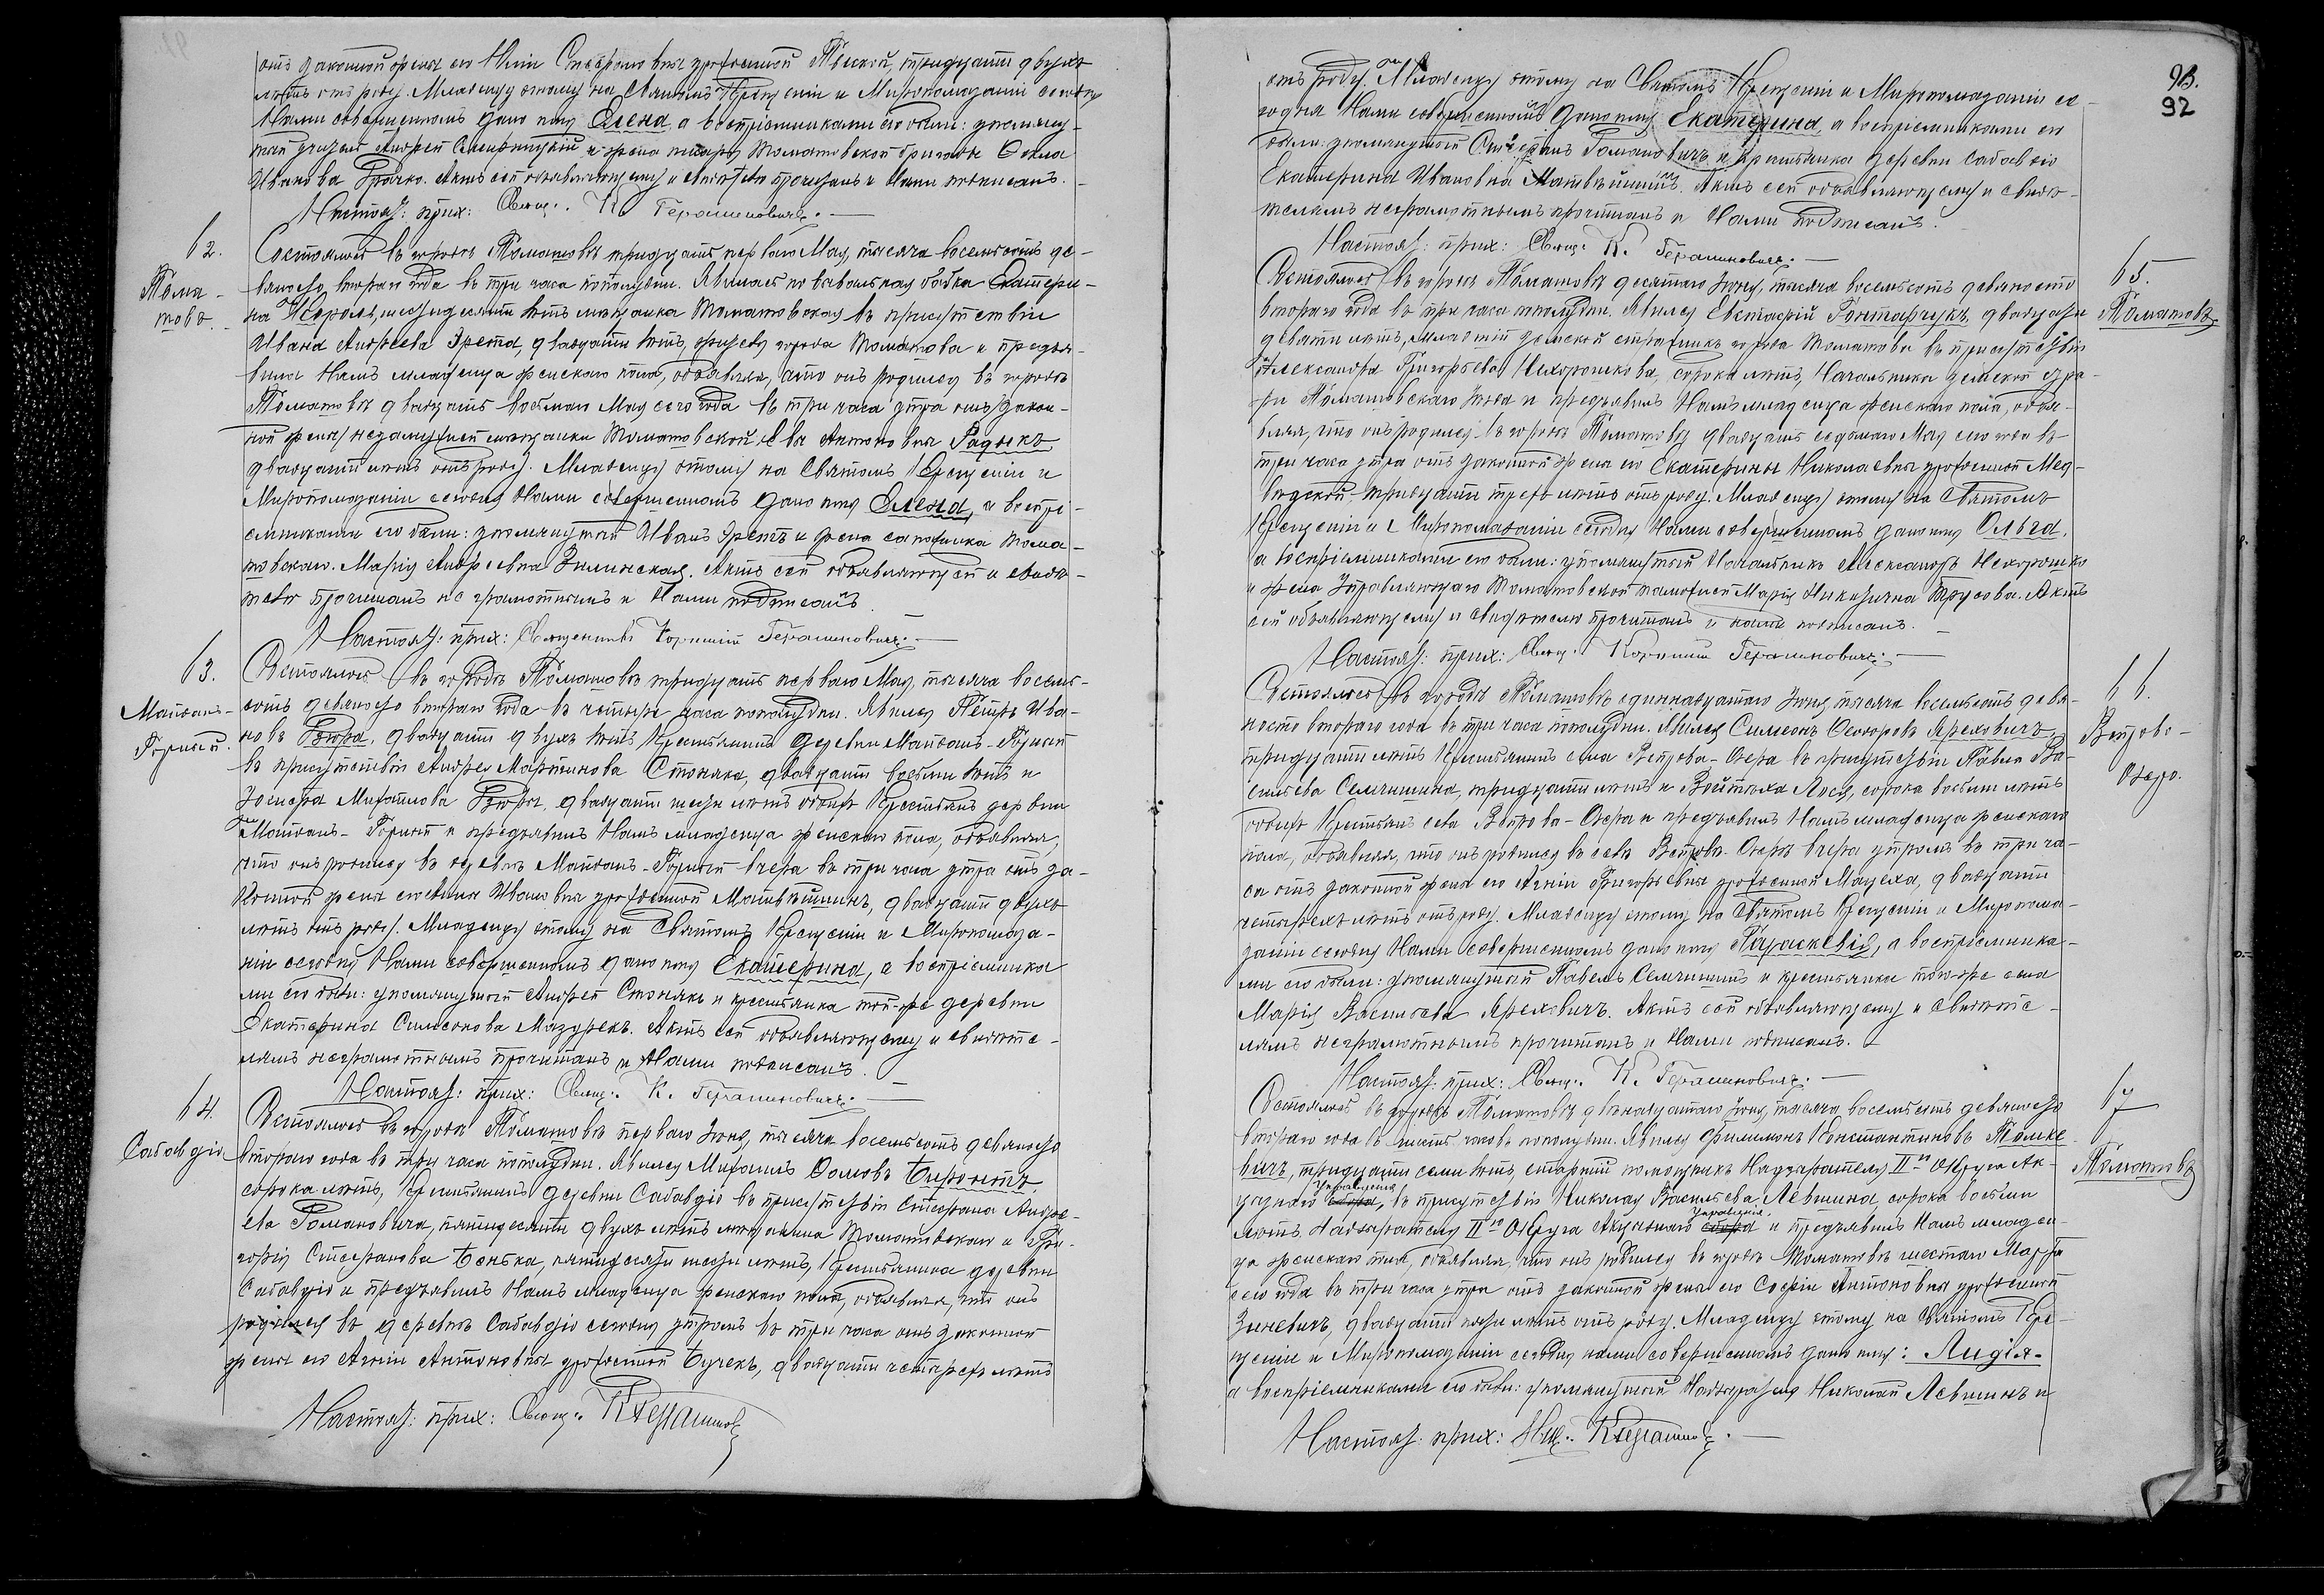 отъ законной жены его Нины Стефановны урожденной тридцати двухъ
лѣтъ отъ роду. Младенцу этому на Святомъ Крещеніи и Миропомазаніи сегодня
Нами совершенномъ дано имя Елена, а воспріемниками его были: упомяну-
тый Андрей и жена Томашовской бригады Ѳекла
Иванова Актъ сей объявляющему и прочитанъ и Нами подписанъ.
Настоят: прих: Свящ: К. Герашиновичъ.
62.
Тома-
шовъ.
Состоялось въ городѣ Томашовѣ тридцать перваго Мая, тысяча восемьсотъ де-
вяносто втораго года въ три часа пополудни. Явилась повивальная бабка Катери-
на Король, лѣтъ мѣщанка Томашовская въ присутствіи
Ивана Андреева Эрета, двадцати лѣтъ, города Томашова и предъя-
вила Намъ младенца женскаго пола, объявляя, что онъ родился въ городѣ
Томашовѣ двадцать восьмаго Мая сего года въ три часа утра отъ
незамужней мѣщанки Томашовской Евы Антоновны Радыкъ
двадцати лѣтъ отъ роду. Младенцу этому на Святомъ Крещеніи и
Миропомазаніи сегодня Нами совершенномъ дано имя Елена, а воспрі-
емниками его были: упомянутый Иванъ Эретъ и жена сапожника Тома-
шовскаго Марія Андреевна Зилинская. Актъ сей объявляющей и свидѣ-
телю прочитанъ неграмотнымъ и Нами подписанъ.
Настоят: прих: Священникъ Корнилій Герашиновичъ.
63.
Майданъ-
Горный.
Состоялось въ городѣ Томашовѣ тридцать перваго Мая, тысяча восемь-
сотъ девяносто втораго года въ четыре часа пополудни. Явился Петръ Ива-
новъ Бзюра, двадцати двухъ лѣтъ Крестьянинъ деревни Майданъ-Горный
въ присутствіи Андрея Мартинова Стоняка, двадцати восьми лѣтъ и
Михайлова Бзюры, двадцати шести лѣтъ обоихъ Крестьянъ деревни
Майданъ-Горный и предъявилъ Намъ младенца женскаго пола, объявляя,
что онъ родился въ деревнѣ Майданъ-Горный вчера въ три часа утра отъ за-
конной жены его Анны Ивановны урожденной Матвѣйшинъ, двадцати двухъ
лѣтъ отъ роду. Младенцу этому на Святомъ Крещеніи и Миропомаза-
ніи сегодня Нами совершенномъ дано имя Екатерина, а воспріемника-
ми его были: упомянутый Андрей Стонякъ и крестьянка той-же деревни
Екатерина Симеонова Мазурекъ. Актъ сей объявляющему и свидѣте-
лямъ неграмотнымъ прочитанъ и Нами подписанъ.
Настоят: прих: Свящ: К. Герашиновичъ.
64.
Сабавдіо
Состоялось въ городѣ Томашовѣ перваго Іюня, тысяча восемьсотъ девяносто
втораго года въ три часа пополудни. Явился Михаилъ Ѳомовъ
сорока лѣтъ, Крестьянинъ деревни Сабавдіо въ присутствіи Стефана Андре-
ева Романовича, пятидесяти двухъ лѣтъ мѣщанина Томашовскаго и Гри-
горія Стефанова Бонька, пятидесяти шести лѣтъ, Крестьянина деревни
Сабавдіо и предъявилъ Намъ младенца женскаго пола, объявляя, что онъ
родился въ деревнѣ Сабавдіо сегодня утромъ въ три часа отъ законной
жены его Анны Антоновны урожденной Бучекъ, двадцати четырехъ лѣтъ
Настоят: прих: Свящ: К Герашинов
93.
92
отъ роду. Младенцу этому на Святомъ Крещеніи и Миропомазаніи се-
годня Нами совершенномъ дано имя Екатерина, а воспріемниками его
были: упомянутый Стефанъ Романовичъ и Крестьянка деревни Сабавдіо
Екатерина Ивановна Матвѣйшинъ. Актъ сей объявляющему и свидѣ-
телямъ неграмотнымъ прочитанъ и Нами подписанъ.
Настоят: прих: Свящ: К. Герашиновичъ.
65.
Томашовъ
Состоялось въ городѣ Томашовѣ десятаго Іюня, тысяча восемьсотъ девяносто
втораго года въ три часа пополудни. Явился Евстафій Гонтарчукъ, двадцати
девяти лѣтъ, младшій земской стражникъ города Томашова въ присутствіи
Александра Григорьева Нехорошкова, сорока лѣтъ, Начальника земской стра-
жи Томашовскаго уѣзда и предъявилъ Намъ младенца женскаго пола, объя-
вляя, что онъ родился въ городѣ Томашовѣ двадцать седьмаго Мая сего года въ
три часа утра отъ законной жены его Екатерины Николаевны урожденной Мед-
вѣдской тридцати трехъ лѣтъ отъ роду. Младенцу этому на Святомъ
Крещеніи и Миропомазаніи сегодня Нами совершенномъ дано имя Ольга,
а воспріемниками его были: упомянутый Начальникъ Александръ Нехорошко
и жена Управляющаго Томашовской таможней Марія Никитична Трусова. Актъ
сей объявляющему и свидѣтелю прочитанъ и нами подписанъ.
Настоят: прих: Свящ: Корнилій Герашиновичъ.
66.
Вепрово-
Озеро.
Состоялось въ городѣ Томашовѣ одиннадцатаго Іюня тысяча восемьсотъ девя-
носто втораго года въ три часа пополудни. Явился Симеонъ Ѳеодоровъ Яреховичъ,
тридцати лѣтъ Крестьянинъ села Вепрова-Озера въ присутствіи Павла Ва-
сильева Семчишина, тридцати лѣтъ и Войтѣха Лося, сорока восьми лѣтъ
обоихъ Крестьянъ села Вепрова-Озера и предъявилъ Намъ младенца женскаго
пола, объявляя, что онъ родился въ селѣ Вепровѣ-Озерѣ вчера утромъ въ три ча-
са отъ законной жены его Агніи Григорьевны урожденной Мацеха, двадцати
четырехъ лѣтъ отъ роду. Младенцу этому на Святомъ Крещеніи и Миропома-
заніи сегодня Нами совершенномъ дано имя Параскевія, а воспріемника-
ми его были: упомянутый Павелъ Семчишинъ и крестьянка того-же села
Марія Васильева Яреховичъ. Актъ сей объявляющему и свидѣте-
лямъ неграмотнымъ прочитанъ и Нами подписанъ.
Настоят: прих: Свящ: К. Герашиновичъ.
67
Томашовъ
Состоялось въ городѣ Томашовѣ двѣнадцатаго Іюня, тысяча восемьсотъ девяносто
втораго года въ часовъ пополудни. Явился Филимонъ Константиновъ Томке
вичъ, тридцати семи лѣтъ, старшій помощникъ Надзирателя IIго Округа Ак-
цизнаго Управленія, въ присутствіи Николая Васильева Левшина, сорока восьми
лѣтъ Надзирателя IIго Округа Акцизнаго Управленія и предъявилъ Намъ младен-
ца женскаго пола, объявляя, что онъ родился въ городѣ Томашовѣ шестаго Марта
сего года въ три часа утра отъ законной жены его Софіи Антоновны урожденной
Зиневичъ, двадцати пяти лѣтъ отъ роду. Младенцу этому на Святомъ Кре-
щеніи и Миропомазаніи сегодня нами совершенномъ дано имя: Лидія-
а воспріемниками его были: упомянутый Надзиратель Николай Левшинъ и
Настоят: прих: Свящ: К Герашинов